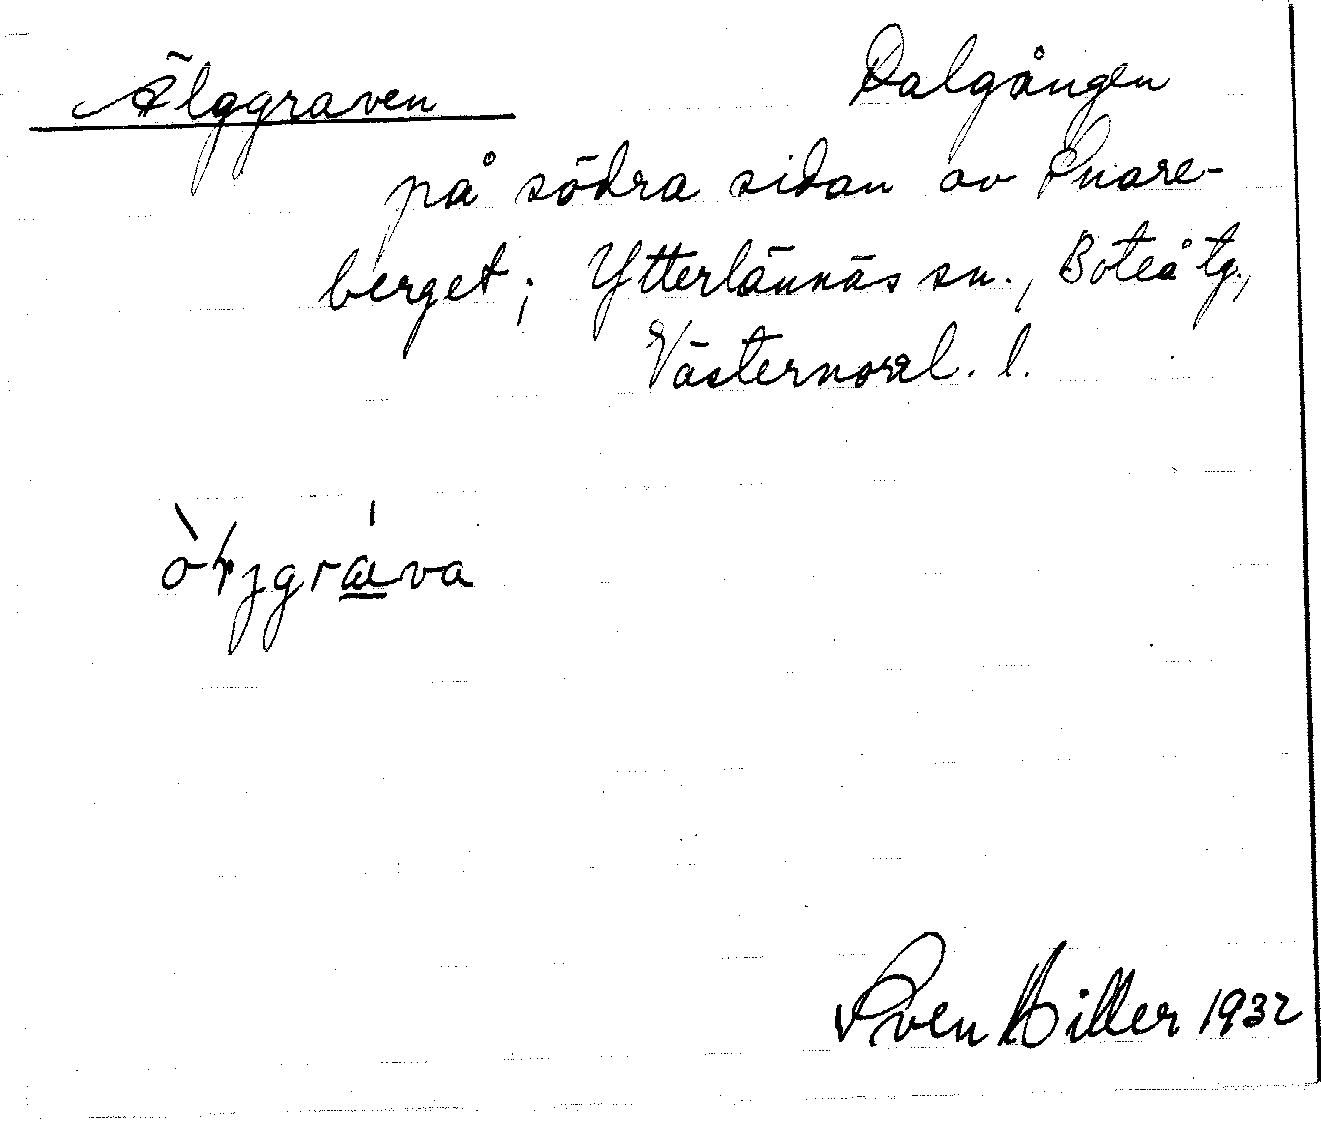 Älggraven Dalgången
på södra sidan av Snare-
berget; Ytterlännäs sn., Boteå tg.,
Västernorrl. l.
Sven Hiller 1932